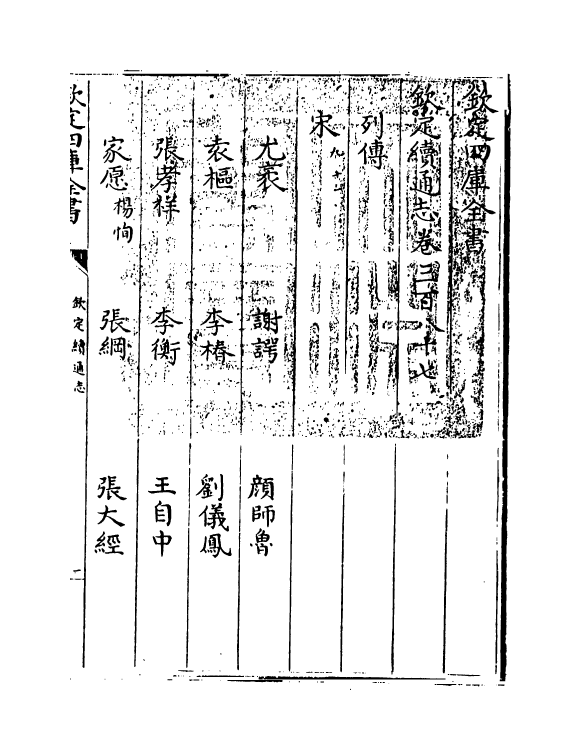 欽定四庫全書
欽定續通志卷三百八十七
列傳
宋
尤袤 謝諤 顔師魯
袁樞 李椿 劉儀鳳
張孝祥 李衡 王自中
家愿 楊恂 張綱 張大經
欽定四庫全書 欽定續通志 一